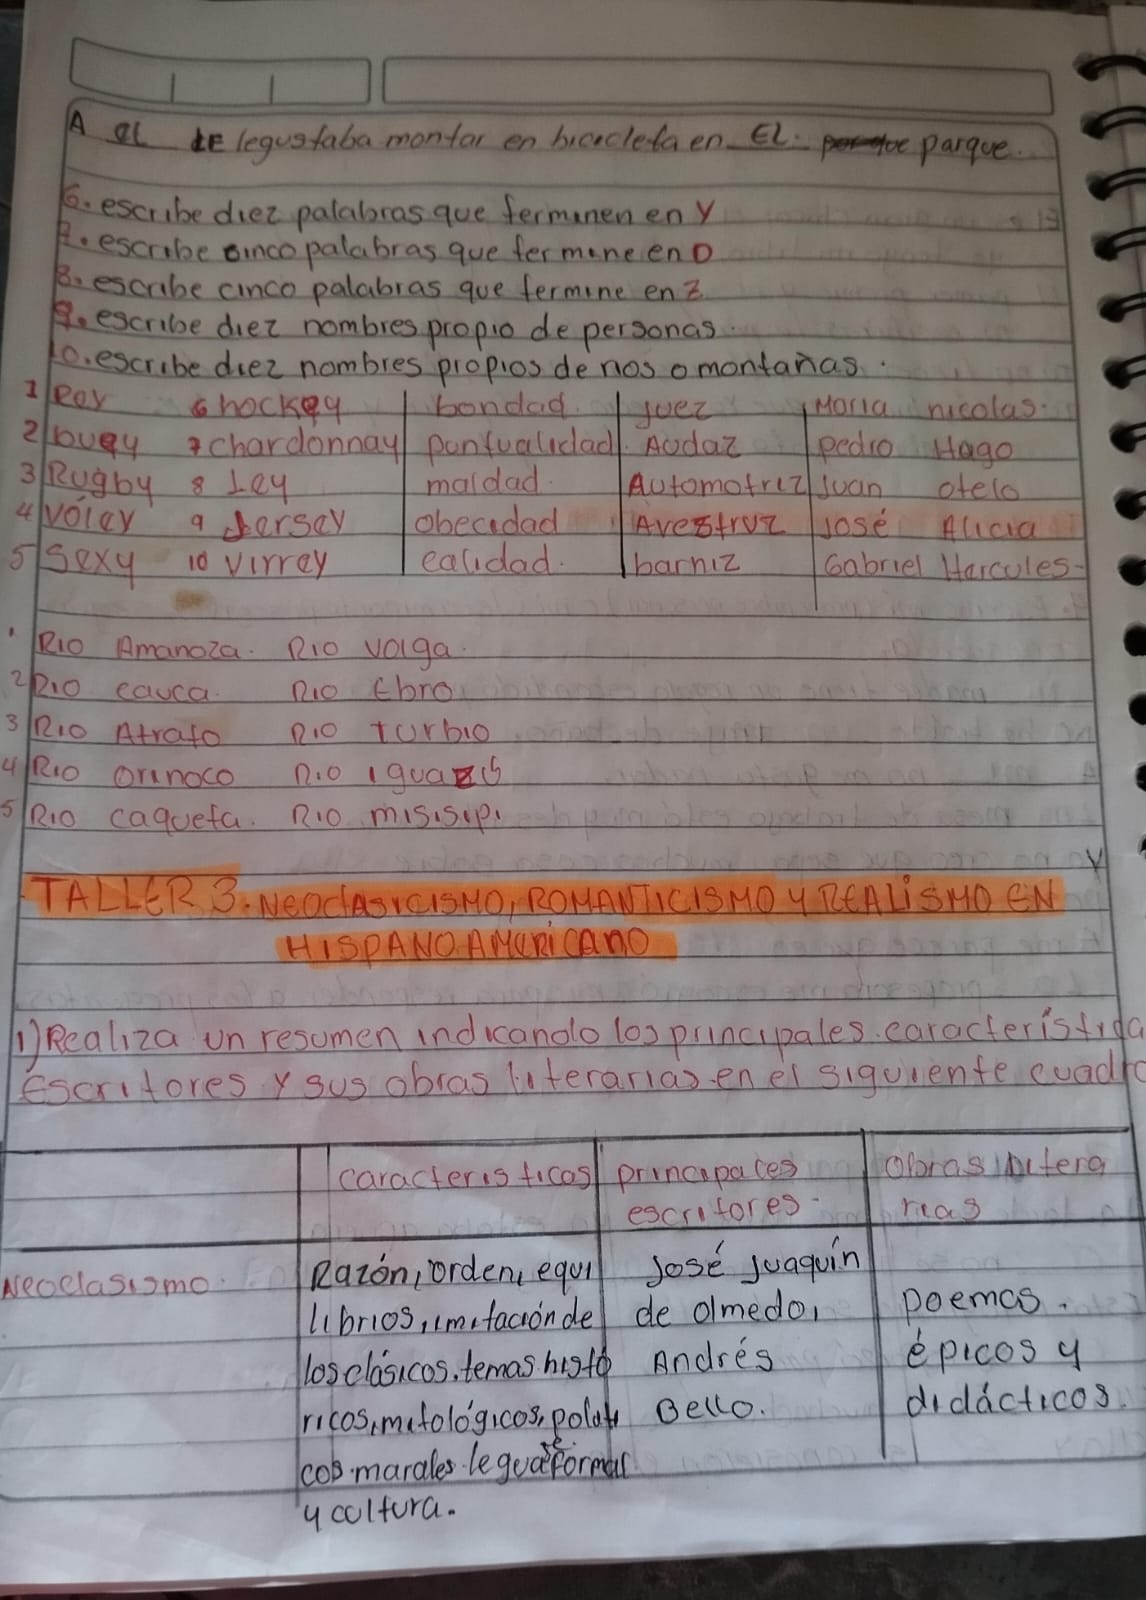 A el LE legustaba montar en bicicleta en EL. parque.
6. escribe diez palabras que terminen en Y
7. escribe cinco palabras que termine en D
8. escribe cinco palabras que termine en Z
9. escribe diez nombres propio de personas.
10. escribe diez nombres propios de rios o montañas.
1 Rey 6 hockey bondad. juez Maria nicolas.
2 buey 7 chardonnay puntualidad. Audaz pedro Hago
3 Rugby 8 Ley maldad. Automotriz Juan otelo
4 vóley 9 Jersey obecidad Avestruz José Alicia
5 Sexy 10 virrey ealidad. barniz Gabriel Hercules-
1 Rio Amanoza. Rio volga.
2 Rio cauca. Rio Ebro
3 Rio Atrato Rio turbio
4 Rio orinoco Rio iguazú
5 Rio caqueta. Rio misisipi
TALLER 3. NEOclasicisMO, ROMANTICISMO Y REALiSMO EN
HISPANOAMERicano
1) Realiza un resumen indicando los principales característica
Escritores y sus obras literarias en el siguiente cuadro
caracteristicas principales obras litera
escritores- rias
Neoclasismo. Razón, orden, equi José Juaquín
librios, imitación de de olmedo, poemas.
los clásicos. temas histó Andrés épicos y
ricos, mitológicos, politi Bello. didácticos.
cos. marales. legua formal
y cultura.